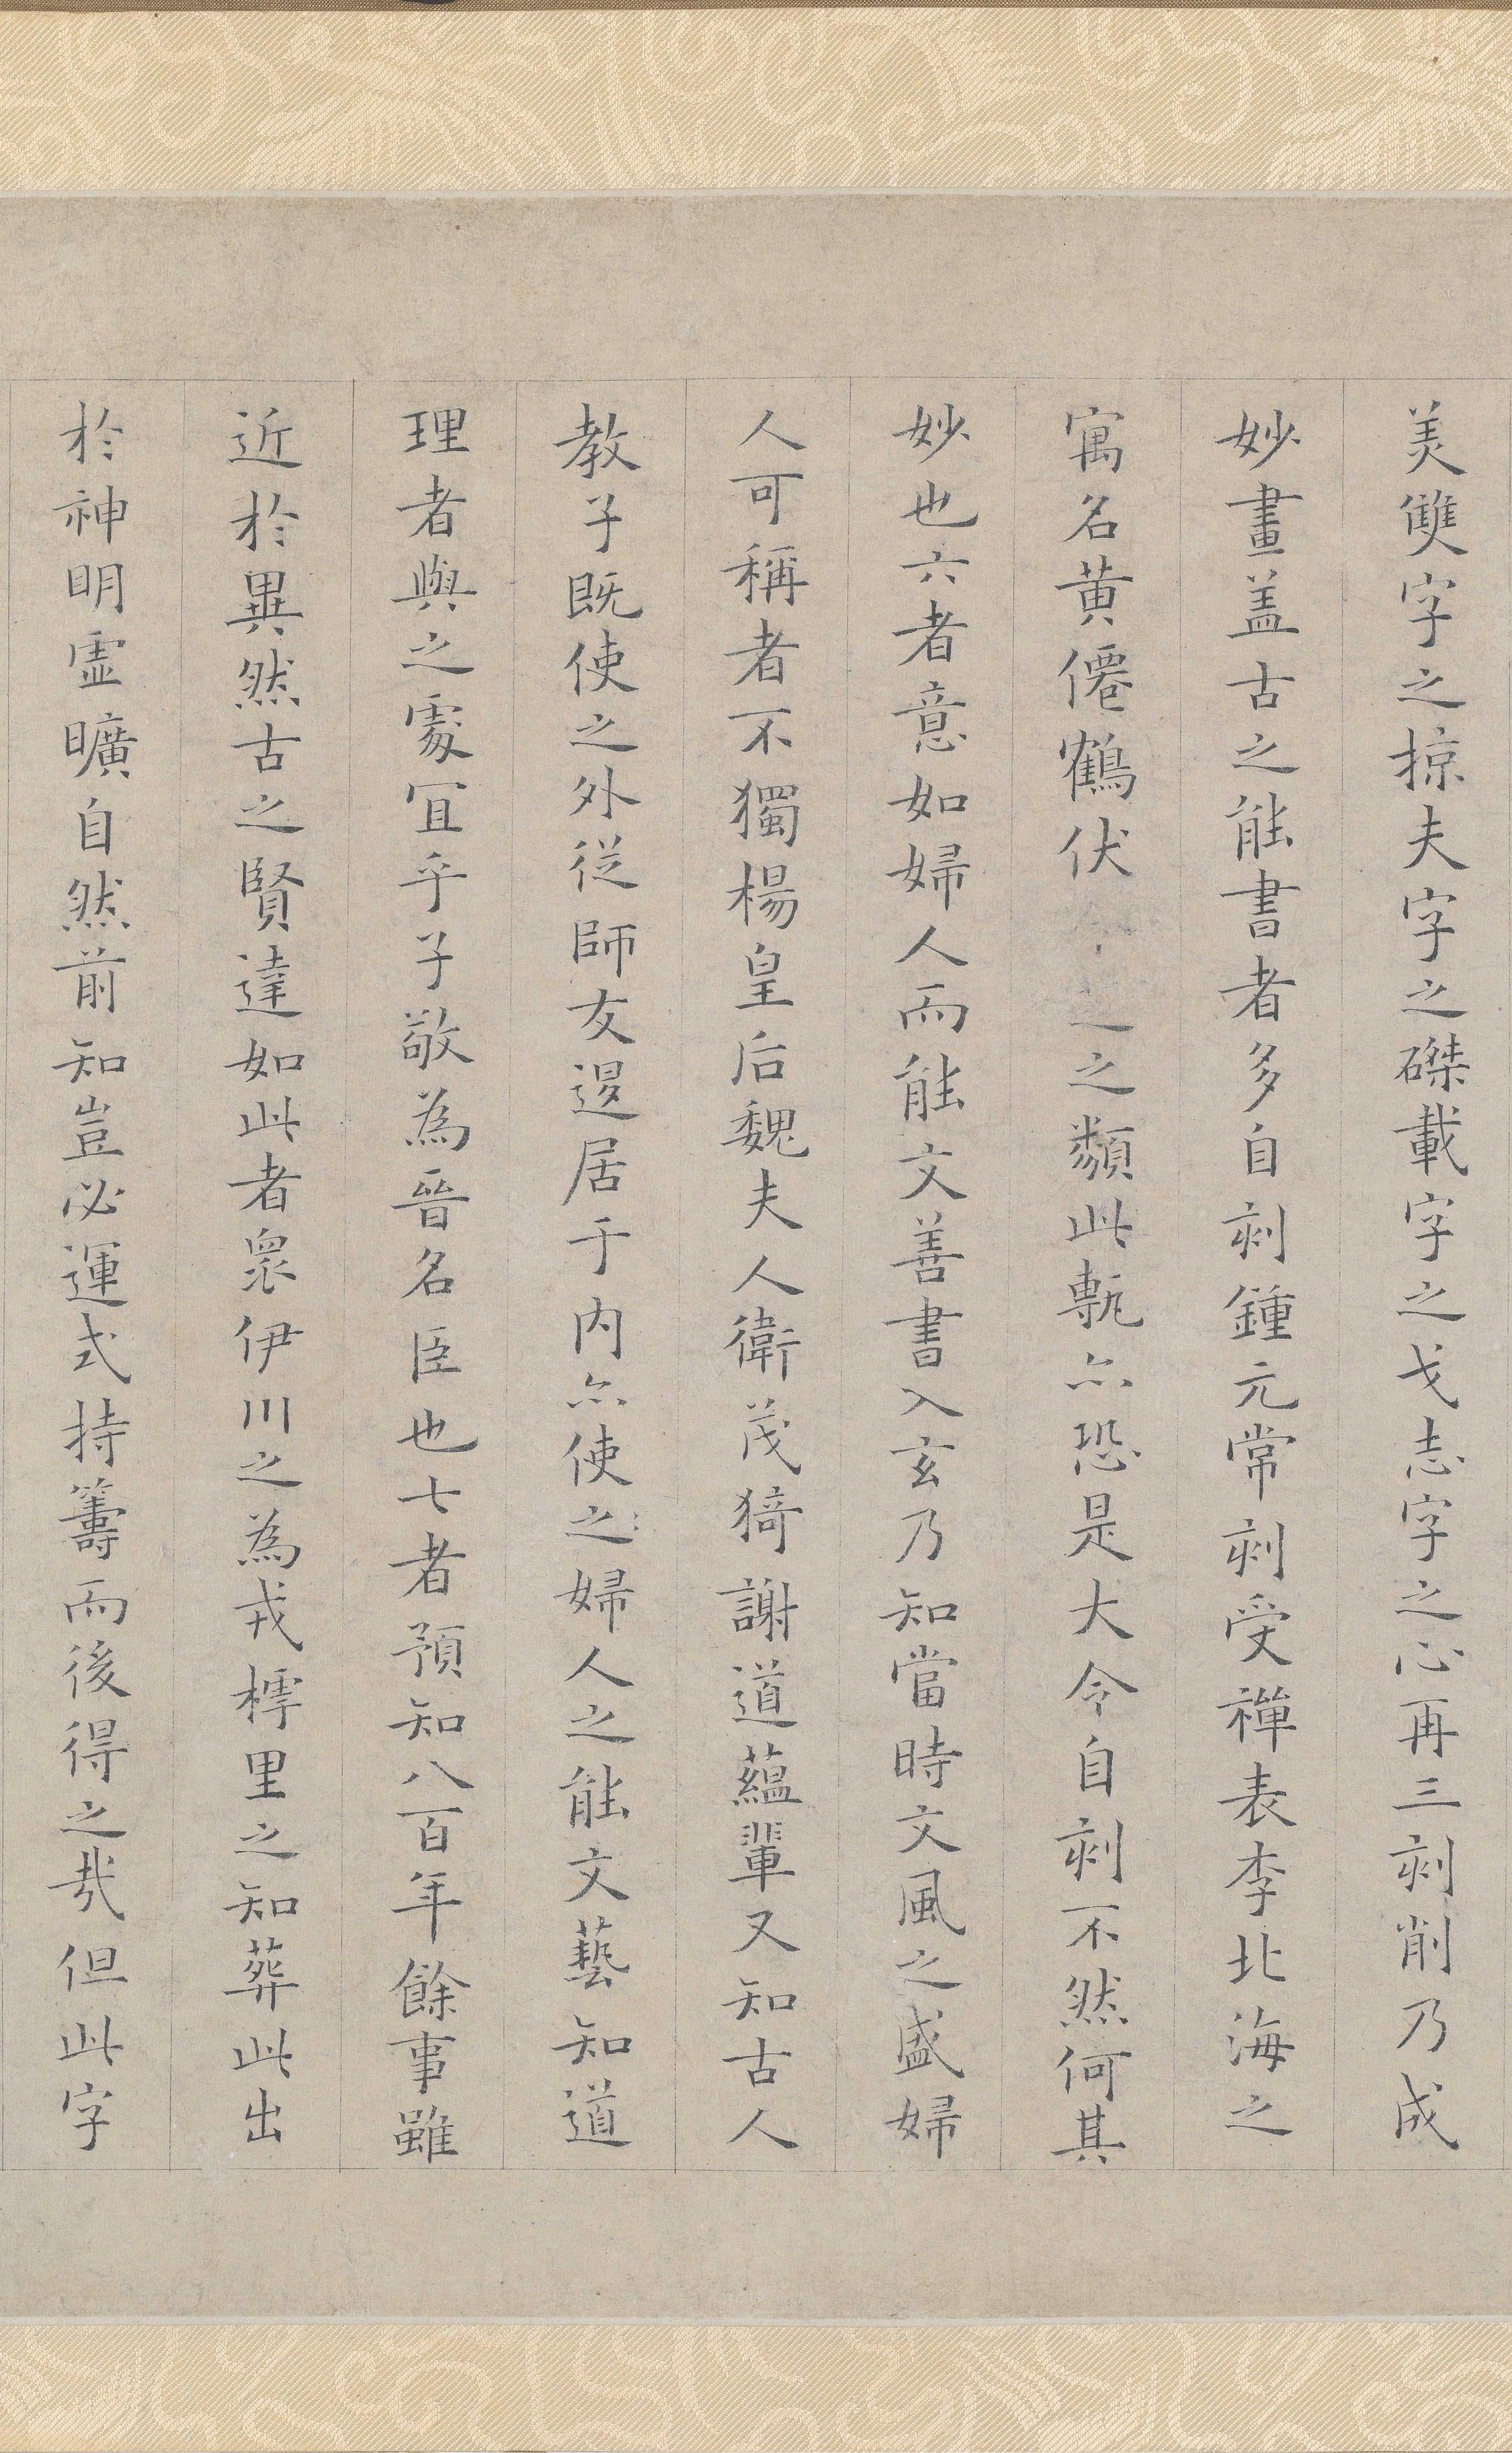 美雙字之掠夫字之磔載字之戈志字之心再三刻削乃成
妙畫盖古之能書者多自刻鍾元常刻受禪表李北海之
寓名黄僊鶴伏之類此甎亦恐是大令自刻不然何其
妙也六者意如婦人而能文善書入玄乃知當時文風之盛婦
人可稱者不獨楊皇后魏夫人衛茂猗謝道藴輩又知古人
教子既使之外從師友退居于内亦使之婦人之能文藝知道
理者與之處宜乎子敬為晉名臣也七者預知八百年餘事雖
近於異然古之賢達如此者衆伊川之為戎樗里之知葬此出
於神明虛曠自然前知豈必運式持籌而後得之哉但此字